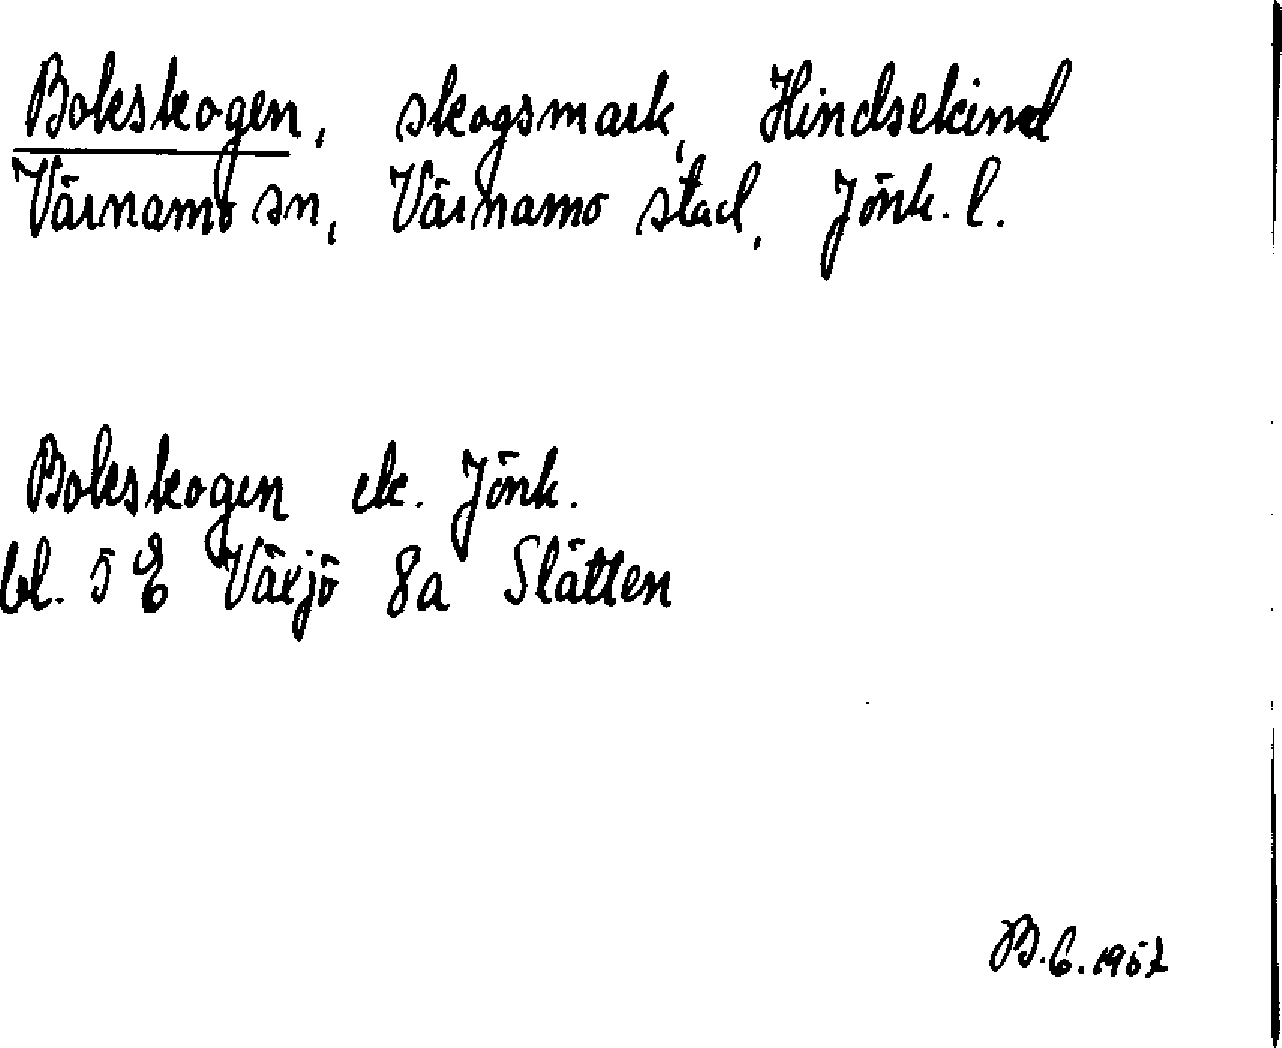 Bokskogen, skogsmark, Hindsekind
Värnamo sn, Värnamo stad, Jönk. l.
Bokskogen ek. Jönk.
bl. 5 E Växjö 8a Slätten
B.G. 1952